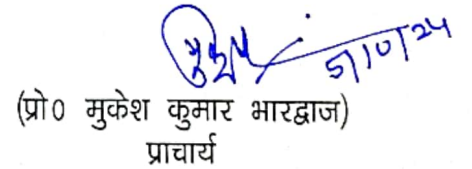 5/10/24
(प्रो० मुकेश कुमार भारद्वाज)
प्राचार्य